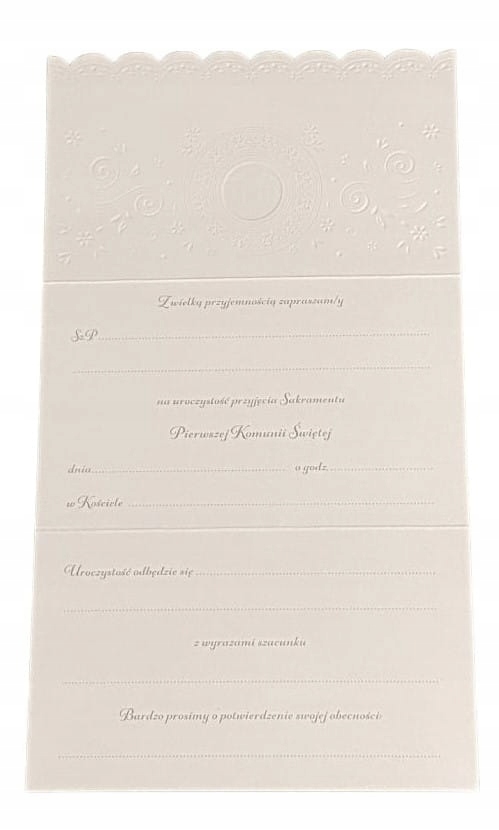 Z wielką przyjemnością zapraszam/y
Sz.P.
na uroczystość przyjęcia Sakramentu
Pierwszej Komunii Świętej
dnia o godz.
w Kościele
Uroczystość odbędzie się
z wyrazami szacunku
Bardzo prosimy o potwierdzenie swojej obecności